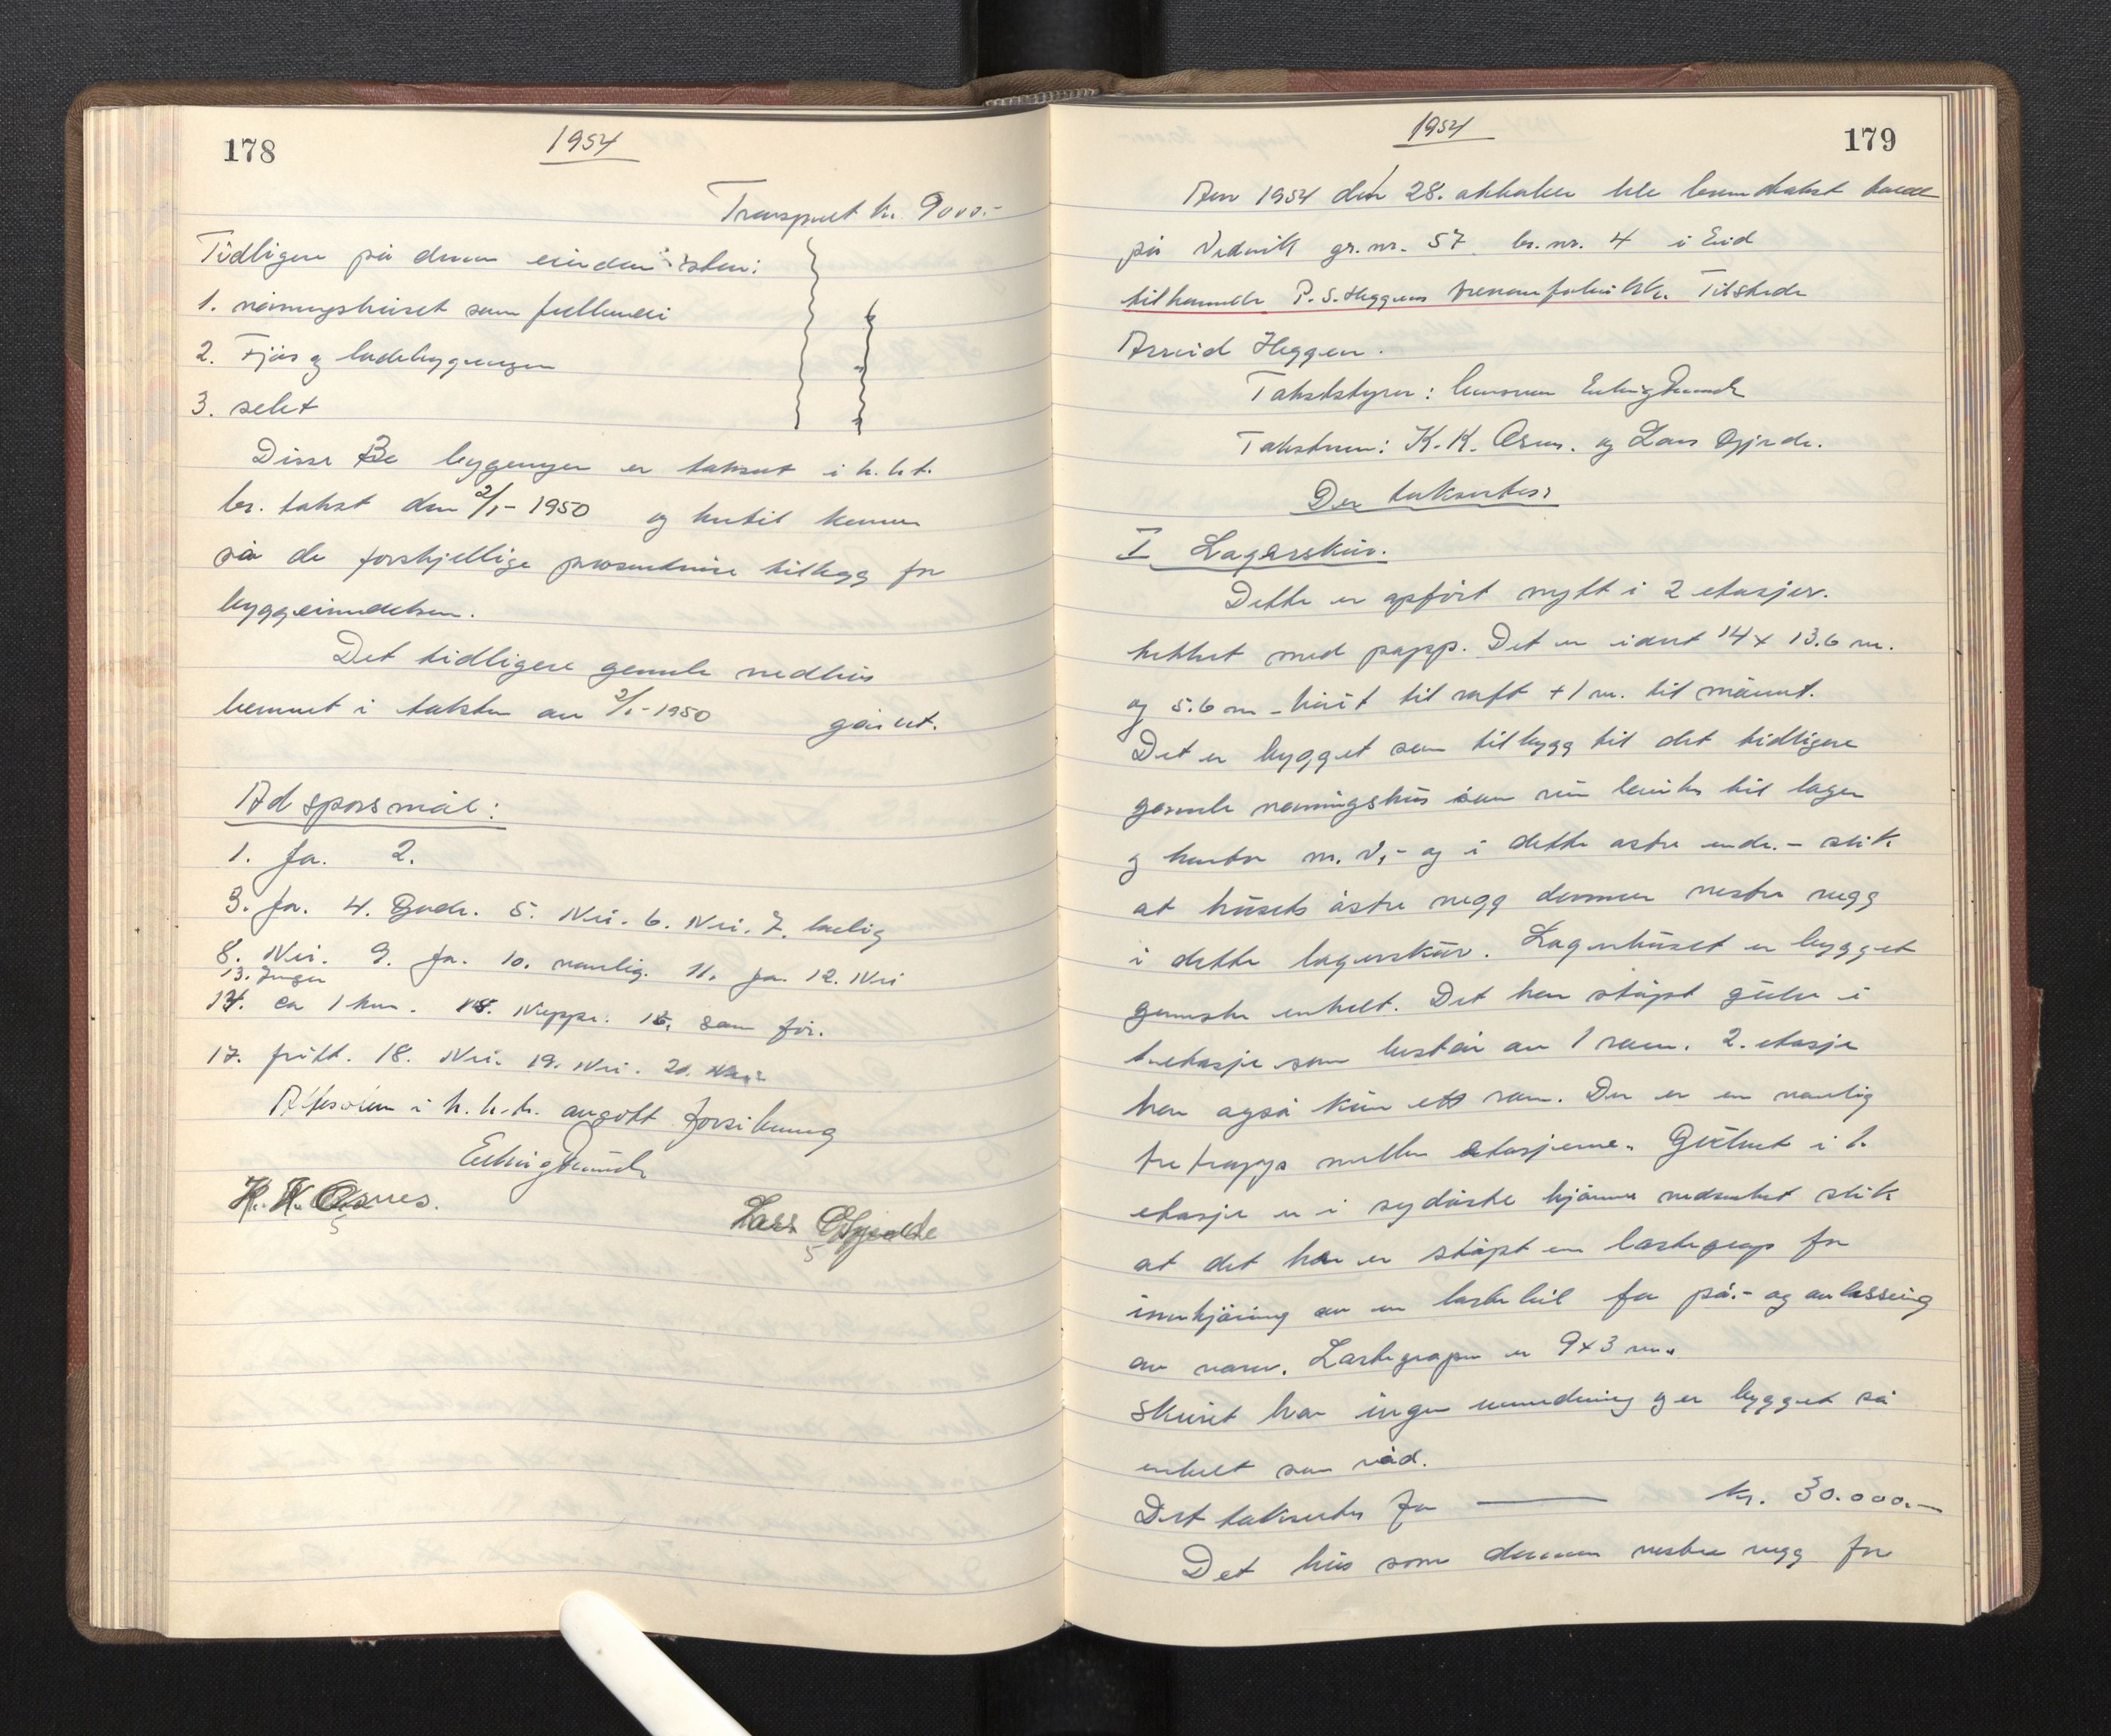 178
1954
Transport kr. 9000.-
Tidligere på denne eiendommen:
1. våningshuset som
2. Fjøs og ladebygningen
3. selet
Disse bygninger er taksert i h.h.t.
br. takst den 2/1-1950 og hertil kommer
så de forskjellige prosentvise tillegg for
byggeinndeksen.
Det tidligere gamle vedhus
bemnet i taksten av 2/1-1950 går ut.
Ad spørsmål:
1. Ja. 2.
3. Ja. 4. Gode. 5. Nei. 6. Nei. 7. belig
8. Nei. 9. Ja. 10. vanlig. 11. Ja. 12. Nei
13. Ingen
14. ca 1 km. 15. Neppe. 16. som før.
17. fritt. 18. Nei. 19. Nei. 20. Nei
i h.h.t. avgitt forsikring
K. K. Osnes. Lars Gjerde
179
1954
År 1954 den 28. oktober ble branntakst holdt
på Nedvik gr.nr. 57 br.nr. 4 i Eid
tilhørende P. S. Heggens trevarefabrikk. Tilstede
Arvid Heggen.
Takstmenn: K. K. Osnes. og Lars Gjerde.
Der takseres:
I Lagerskur.
Dette er oppført nytt i 2 etasjer.
tekket med papp. Det er i dert 14 x 13.6 m.
og 5.6 m høit til raft + 1 m. til mønet.
Det er bygget som tilbygg til det tidligere
gamle våningshus som nu benyttes til lager
og kontor m. v,- og i dette østre ende.- slik
at husets østre vegg danner vestre vegg
i dette lagerskur. Lagerhuset er bygget
ganske enkelt. Det har støpt gulv i
1. etasje som består av 1 rum. 2. etasje
har også kun ett rum. Der er en vanlig
tretrapp mellem etasjerne. Gulvet i 1.
etasje er i sydøstre hjørne nedsenket slik
at det her er støpt en lastegrop for
innkjøring av en lastebil for på.- og avlessing
av varer. Lastegropen er 9x3 m.
Skuret har ingen innredning og er bygget så
enkelt som råd.
Det takseres for kr. 30.000.-
Det hus som danner vestre vegg for